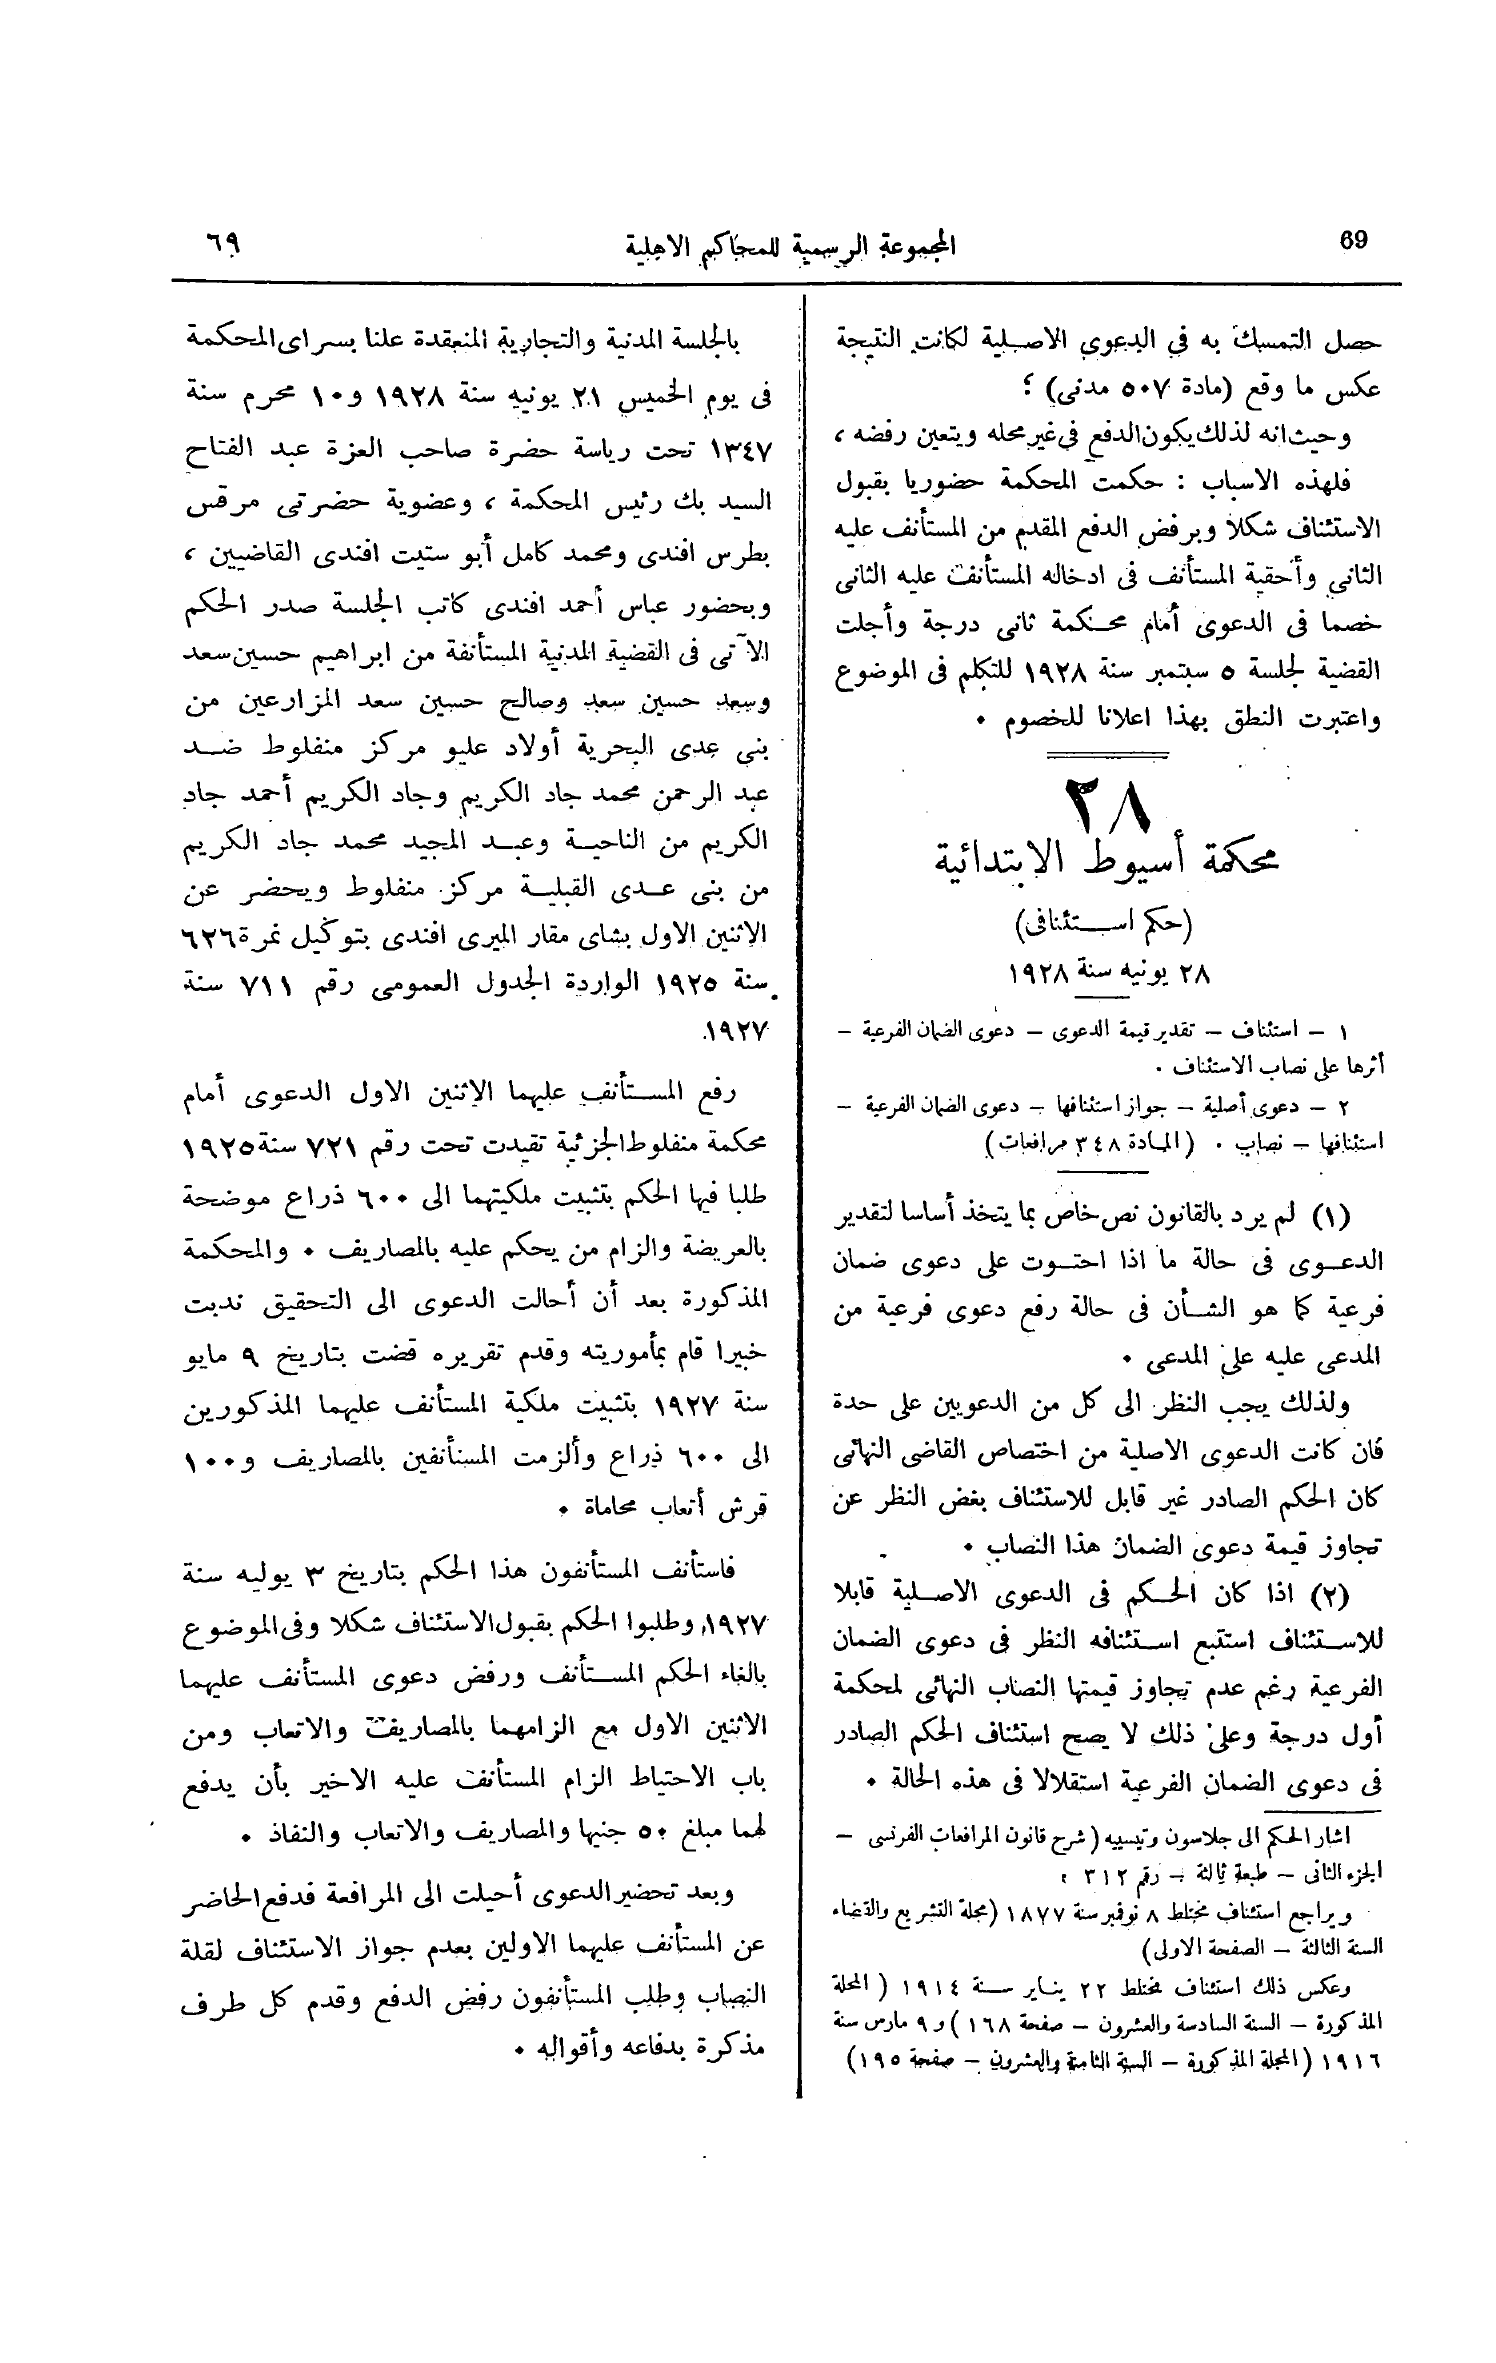 69
المجموعة الرسمية للمحاكم الاهلية
٦٩
حصل التمسك به في الدعوى الاصلية لكانت النتيجة
عكس ما وقع (مادة ٥٠٧ مدنى) ؛
وحيث انه لذلك يكون الدفع فى غير محله ويتعين رفضه ،
فلهذه الاسباب : حكمت المحكمة حضوريا بقبول
الاستئناف شكلا وبرفض الدفع المقدم من المستأنف عليه
الثانى وأحقية المستأنف فى ادخاله المستأنف عليه الثانى
خصما فى الدعوى أمام محكمة ثانى درجة وأجلت
القضية لجلسة ٥ سبتمبر سنة ١٩٢٨ للتكلم فى الموضوع
واعتبرت النطق بهذا اعلانا للخصوم .
٢٨
محكمة أسيوط الابتدائية
(حكم استئنافى)
٢٨ يونيه سنة ١٩٢٨
١ – استئناف – تقدير قيمة الدعوى – دعوى الضمان الفرعية –
أثرها على نصاب الاستئناف .
٢ – دعوى أصلية – جواز استئنافها – دعوى الضمان الفرعية –
استئنافها – نصاب . (المادة ٣٤٨ مرافعات)
(١) لم يرد بالقانون نص خاص بما يتخذ أساسا لتقدير
الدعوى فى حالة ما اذا احتوت على دعوى ضمان
فرعية كما هو الشأن فى حالة رفع دعوى فرعية من
المدعى عليه على المدعى .
ولذلك يجب النظر الى كل من الدعويين على حدة
فان كانت الدعوى الاصلية من اختصاص القاضى النهائى
كان الحكم الصادر غير قابل للاستئناف بغض النظر عن
تجاوز قيمة دعوى الضمان هذا النصاب .
(٢) اذا كان الحكم فى الدعوى الاصلية قابلا
للاستئناف استتبع استئنافه النظر فى دعوى الضمان
الفرعية رغم عدم تجاوز قيمتها النصاب النهائى لمحكمة
أول درجة وعلى ذلك لا يصح استئناف الحكم الصادر
فى دعوى الضمان الفرعية استقلالا فى هذه الحالة .
اشار الحكم الى جلاسون وتيسييه (شرح قانون المرافعات الفرنسى –
الجزء الثانى – طبعة ثالثة – رقم ٣١٢ ؛
ويراجع استئناف مختلط ٨ نوفمبر سنة ١٨٧٧ (مجلة التشريع والقضاء
السنة الثالثة – الصفحة الاولى)
وعكس ذلك استئناف مختلط ٢٢ يناير سنة ١٩١٤ (المجلة
المذكورة – السنة السادسة والعشرون – صفحة ١٦٨) و ٩ مارس سنة
١٩١٦ (المجلة المذكورة – السنة الثامنة والعشرون – صفحة ١٩٥)
بالجلسة المدنية والتجارية المنعقدة علنا بسراى المحكمة
فى يوم الخميس ٢١ يونيه سنة ١٩٢٨ و ١٠ محرم سنة
١٣٤٧ تحت رياسة حضرة صاحب العزة عبد الفتاح
السيد بك رئيس المحكمة ، وعضوية حضرتى مرقس
بطرس افندى ومحمد كامل أبو ستيت افندى القاضيين ،
وبحضور عباس أحمد افندى كاتب الجلسة صدر الحكم
الآتى فى القضية المدنية المستأنفة من ابراهيم حسين سعد
وسعد حسين سعد وصالح حسين سعد المزارعين من
بنى عدى البحرية أولاد عليو مركز منفلوط ضد
عبد الرحمن محمد جاد الكريم وجاد الكريم أحمد جاد
الكريم من الناحية وعبد المجيد محمد جاد الكريم
من بنى عدى القبلية مركز منفلوط ويحضر عن
الاثنين الاول بشاى مقار الميرى افندى بتوكيل نمرة ٦٢٦
سنة ١٩٢٥ الواردة الجدول العمومى رقم ٧١١ سنة
١٩٢٧.
رفع المستأنف عليهما الاثنين الاول الدعوى أمام
محكمة منفلوط الجزئية تقيدت تحت رقم ٧٢١ سنة ١٩٢٥
طلبا فيها الحكم بتثبيت ملكيتهما الى ٦٠٠ ذراع موضحة
بالعريضة والزام من يحكم عليه بالمصاريف . والمحكمة
المذكورة بعد أن أحالت الدعوى الى التحقيق ندبت
خبيرا قام بمأموريته وقدم تقريره قضت بتاريخ ٩ مايو
سنة ١٩٢٧ بتثبيت ملكية المستأنف عليهما المذكورين
الى ٦٠٠ ذراع وألزمت المستأنفين بالمصاريف و ١٠٠
قرش أتعاب محاماة .
فاستأنف المستأنفون هذا الحكم بتاريخ ٣ يوليه سنة
١٩٢٧ وطلبوا الحكم بقبول الاستئناف شكلا وفى الموضوع
بالغاء الحكم المستأنف ورفض دعوى المستأنف عليهما
الاثنين الاول مع الزامهما بالمصاريف والاتعاب ومن
باب الاحتياط الزام المستأنف عليه الاخير بأن يدفع
لهما مبلغ ٥٠ جنيها والمصاريف والاتعاب والنفاذ .
وبعد تحضير الدعوى أحيلت الى المرافعة فدفع الحاضر
عن المستأنف عليهما الاولين بعدم جواز الاستئناف لقلة
النصاب وطلب المستأنفون رفض الدفع وقدم كل طرف
مذكرة بدفاعه وأقواله .